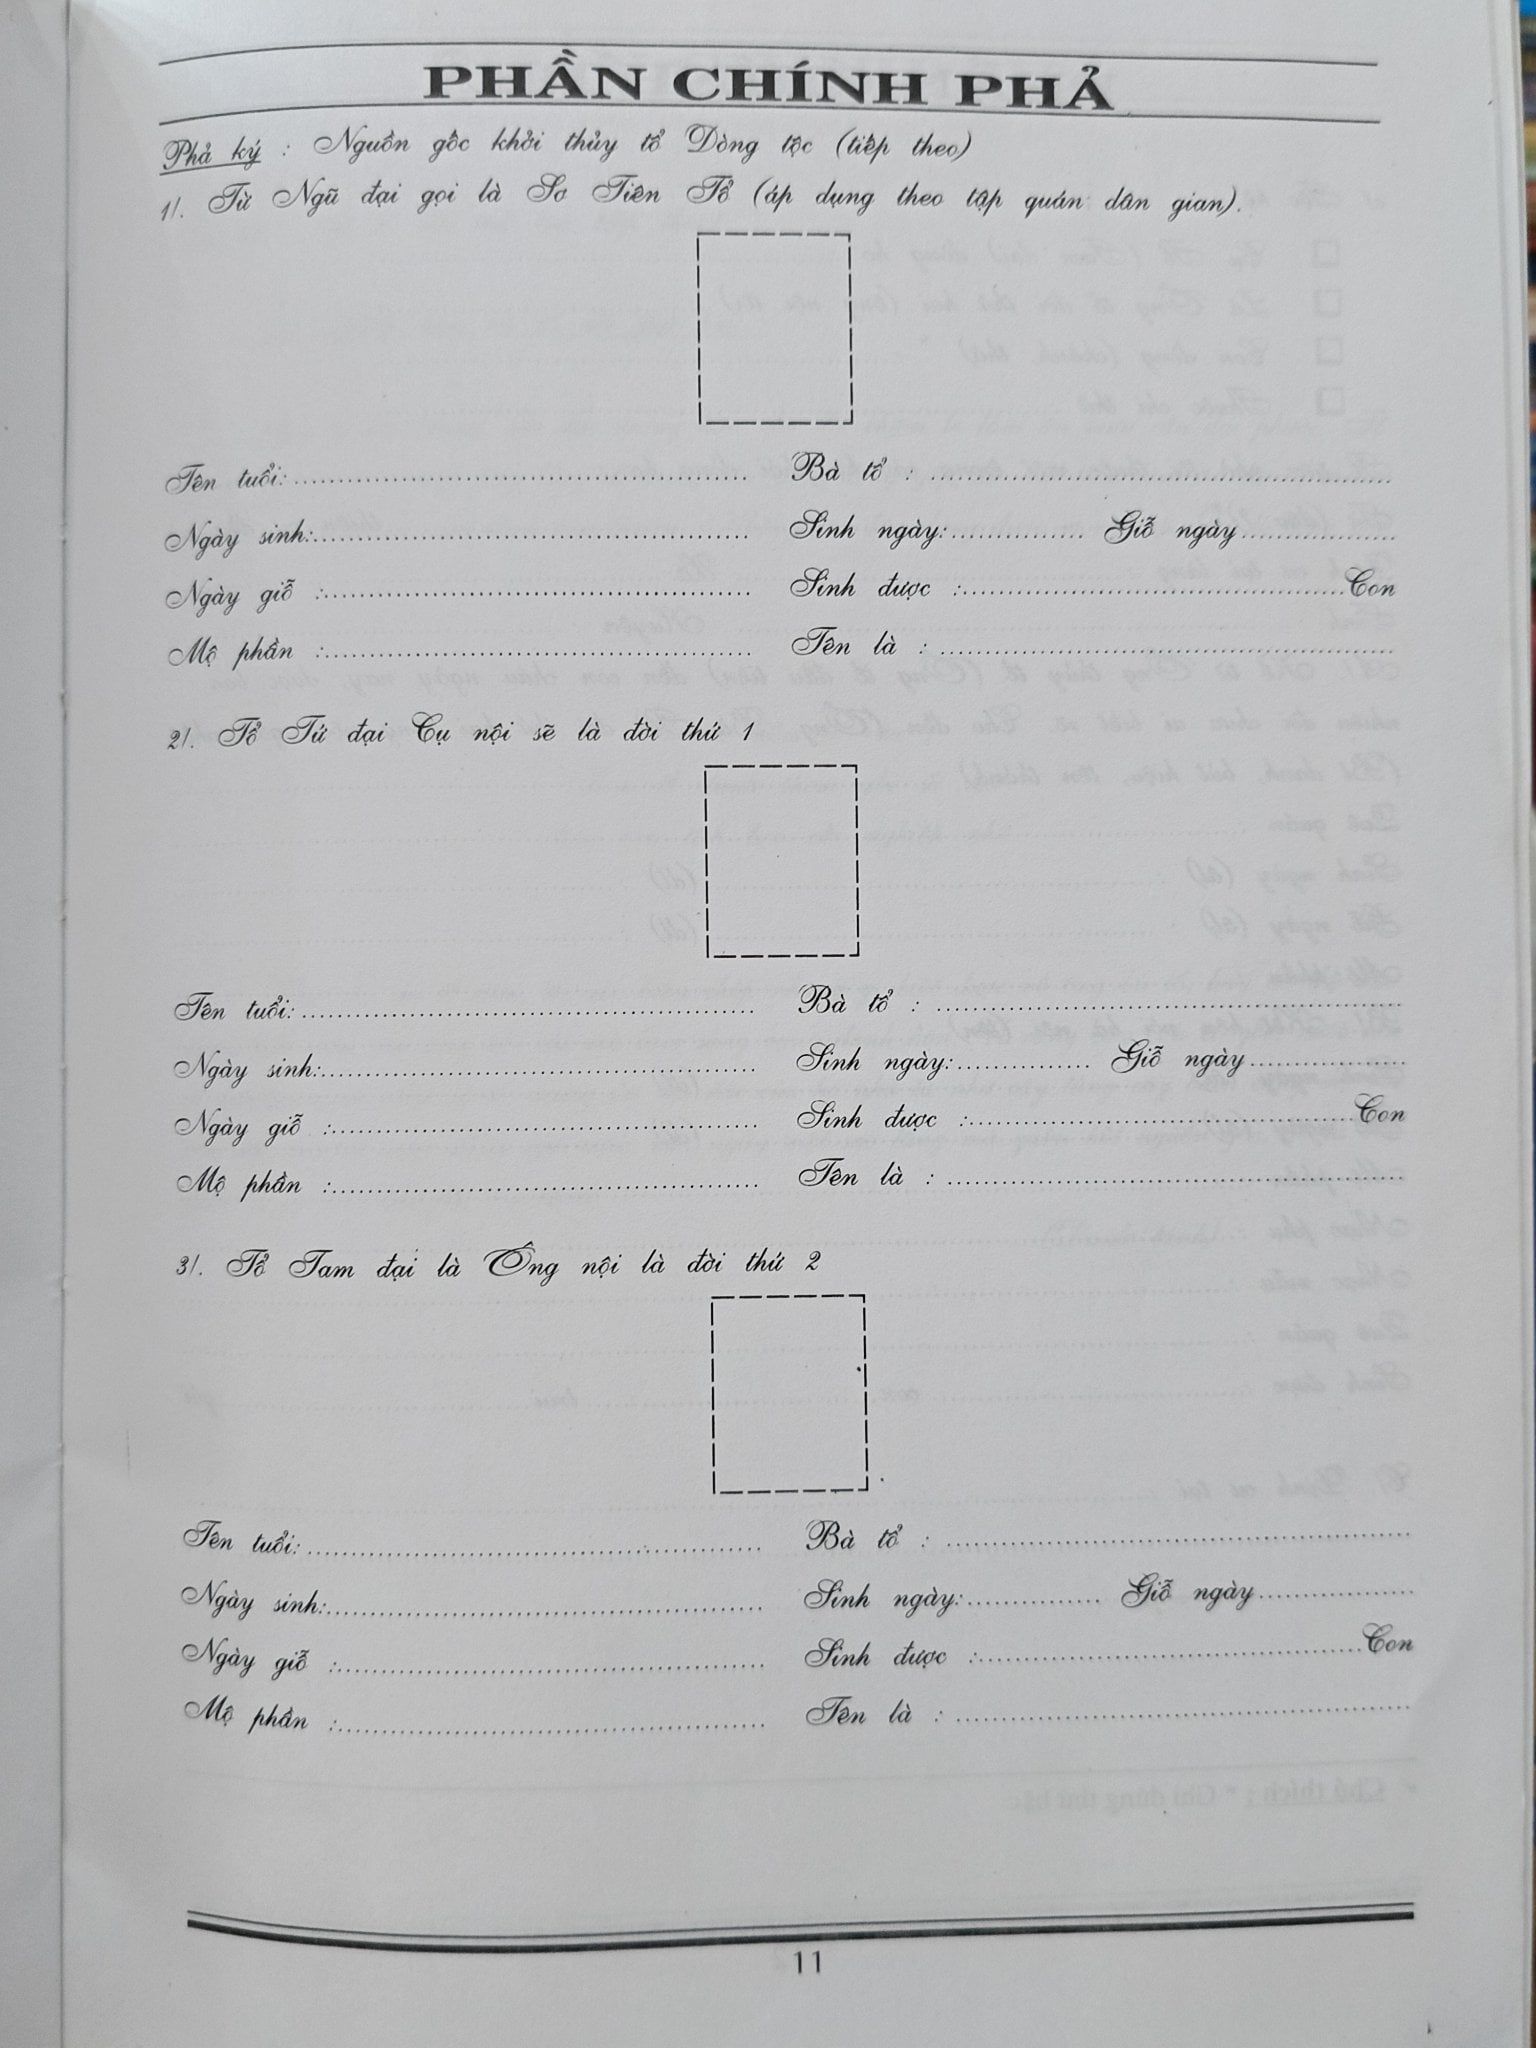 PHẦN CHÍNH PHẢ
Phả ký : Nguồn gốc khởi thủy tổ Dòng tộc (tiếp theo)
1/. Từ Ngũ đại gọi là Sơ Tiên Tổ (áp dụng theo tập quán dân gian).
Tên tuổi:.......... Bà tổ : ..........
Ngày sinh:.......... Sinh ngày:.......... Giỗ ngày..........
Ngày giỗ :.......... Sinh được :..........Con
Mộ phần :.......... Tên là : ..........
2/. Tổ Tứ đại Cụ nội sẽ là đời thứ 1
Tên tuổi:.......... Bà tổ : ..........
Ngày sinh:.......... Sinh ngày:.......... Giỗ ngày..........
Ngày giỗ :.......... Sinh được :..........Con
Mộ phần :.......... Tên là : ..........
3/. Tổ Tam đại là Ông nội là đời thứ 2
Tên tuổi:.......... Bà tổ : ..........
Ngày sinh:.......... Sinh ngày:.......... Giỗ ngày..........
Ngày giỗ :.......... Sinh được :..........Con
Mộ phần :.......... Tên là : ..........
11